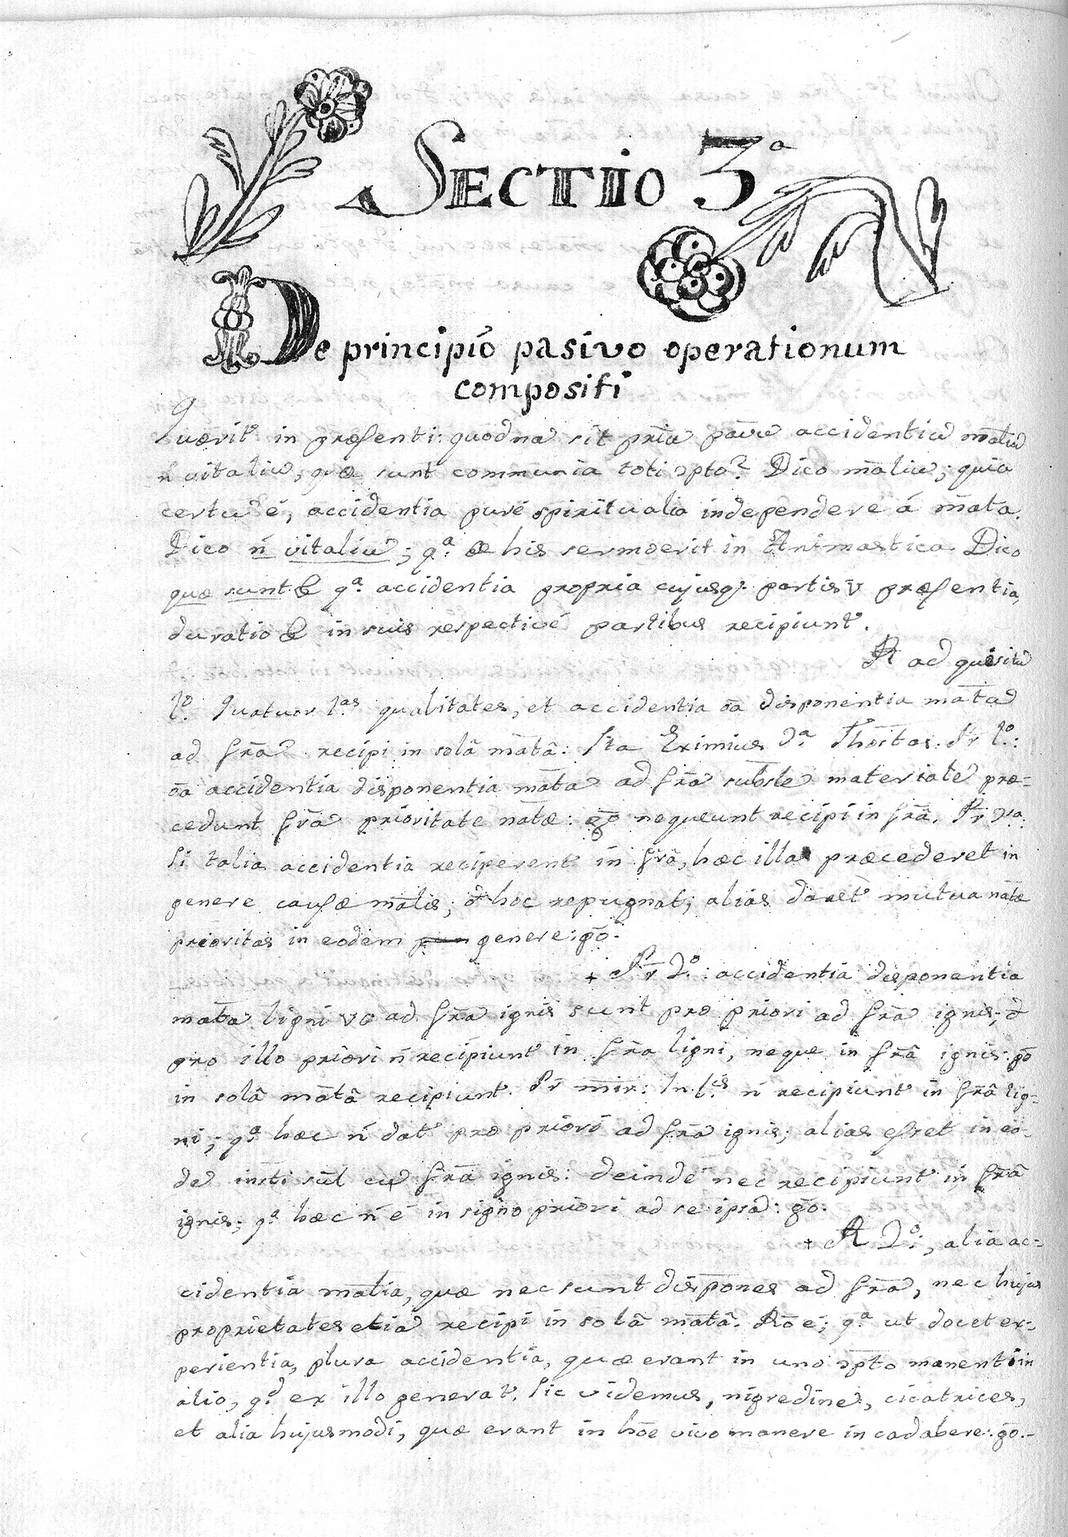 SECTIO 3ª
De principiô pasivo operationum
compositi
Quæritr in præsenti: quodnā sit pri̅ū accidentiū m̅aliū
n̅ vitaliū, quæ sunt communia toti cpto? Dico m̅aliū; quia
certū é, accidentia puré spiritualia independere á m̅ata.
Dico n̅ vitaliū; qª de his sermo erit in Animastica. Dico
quæ sunt & qª accidentia propria cujusq. partis v̅ præsentia,
duratio & in suis respectivé partibus recipiuntr.
R ad quæsitū
1º Quatuor 1as qualitates, et accidentia o̅a disponentia m̅atā
ad fr̅ā recipi in solâ m̅atâ: Ita Eximius Dr Thoistas. Pr 1º:
o̅a accidentia disponentia m̅atā ad fr̅ā subsle̅ materialē præ=
cedunt fr̅ā prioritate natæ: g̅o nequeunt recipi in fr̅â. Pr
Si talia accidentia reciperentr in fr̅â, hæc illa præcederet in
genere causæ m̅alis; & hoc repugnat; alias daretr mutua natæ
prioritas in eodem genere: g̅o.
+ Pr 2º: accidentia disponentia
m̅atā ligni vg ad fr̅ā ignis sunt pro priori ad fr̅ā ignis; &
pro illo priori n̅ recipiuntr in fr̅â ligni, neque in fr̅â ignis: g̅o
in solâ m̅atâ recipiuntr. Pr min: In 1is n̅ recipiuntr in fr̅â lig=
ni; qª hæc n̅ datr pro priori ad fr̅ā ignis; alias esset in eo=
dē insti sūl cū fr̅â ignis: deinde nec recipiuntr in fr̅â
ignis; qª hæc n̅ é in signo priori ad se ipsā: g̅o.
+ R 2º:, alia ac=
cidentia m̅alia, quæ nec sunt dispones ad fr̅ā, nec hujus
proprietates etiā recipi in solâ m̅atâ. R̅o é; qª ut docet ex=
perientia, plura accidentia, quæ erant in uno cpto manent in
alio, qd ex illo generatr. Sic videmus, nigredinē, cicatrices,
et alia hujusmodi, quæ erant in ho̅e vivo manere in cadabere: g̅o.-